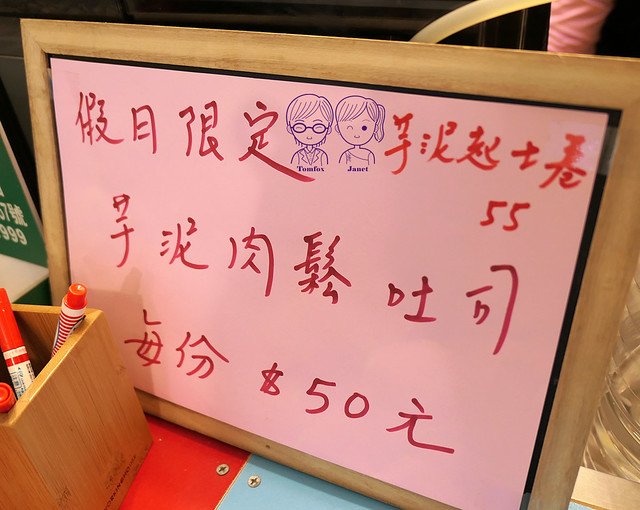 假日限定
Tomfox Janet
芋泥起士卷
55
芋泥肉鬆吐司
每份 $50元
7號
999